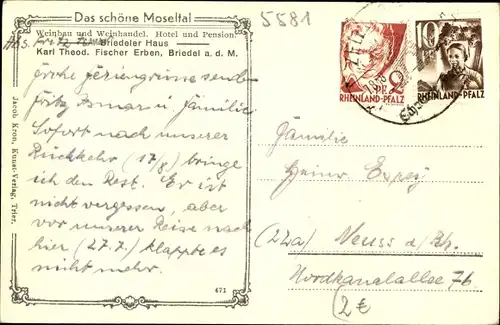 Das schöne Moseltal
5581
Weinbau und Weinhandel. Hotel und Pension.
Abs. Fritz Briedeler Haus
Karl Theod. Fischer Erben, Briedel a. d. M.
sende
Fritz und Familie
Sofort nach unserer
Rückkehr (17/8) bringe
ich den Rest. Er ist
nicht vergessen, aber
vor unserer Reise nach
hier (27.7.) klappte es
nicht mehr.
Jacob Kroon, Kunst-Verlag, Trier.
471
PF 2
RHEINLAND-PFALZ
10
RHEINLAND-PFALZ
Familie
Heinr.
(22a) Neuss a/Rh.
Nordkanalallee 76
2€